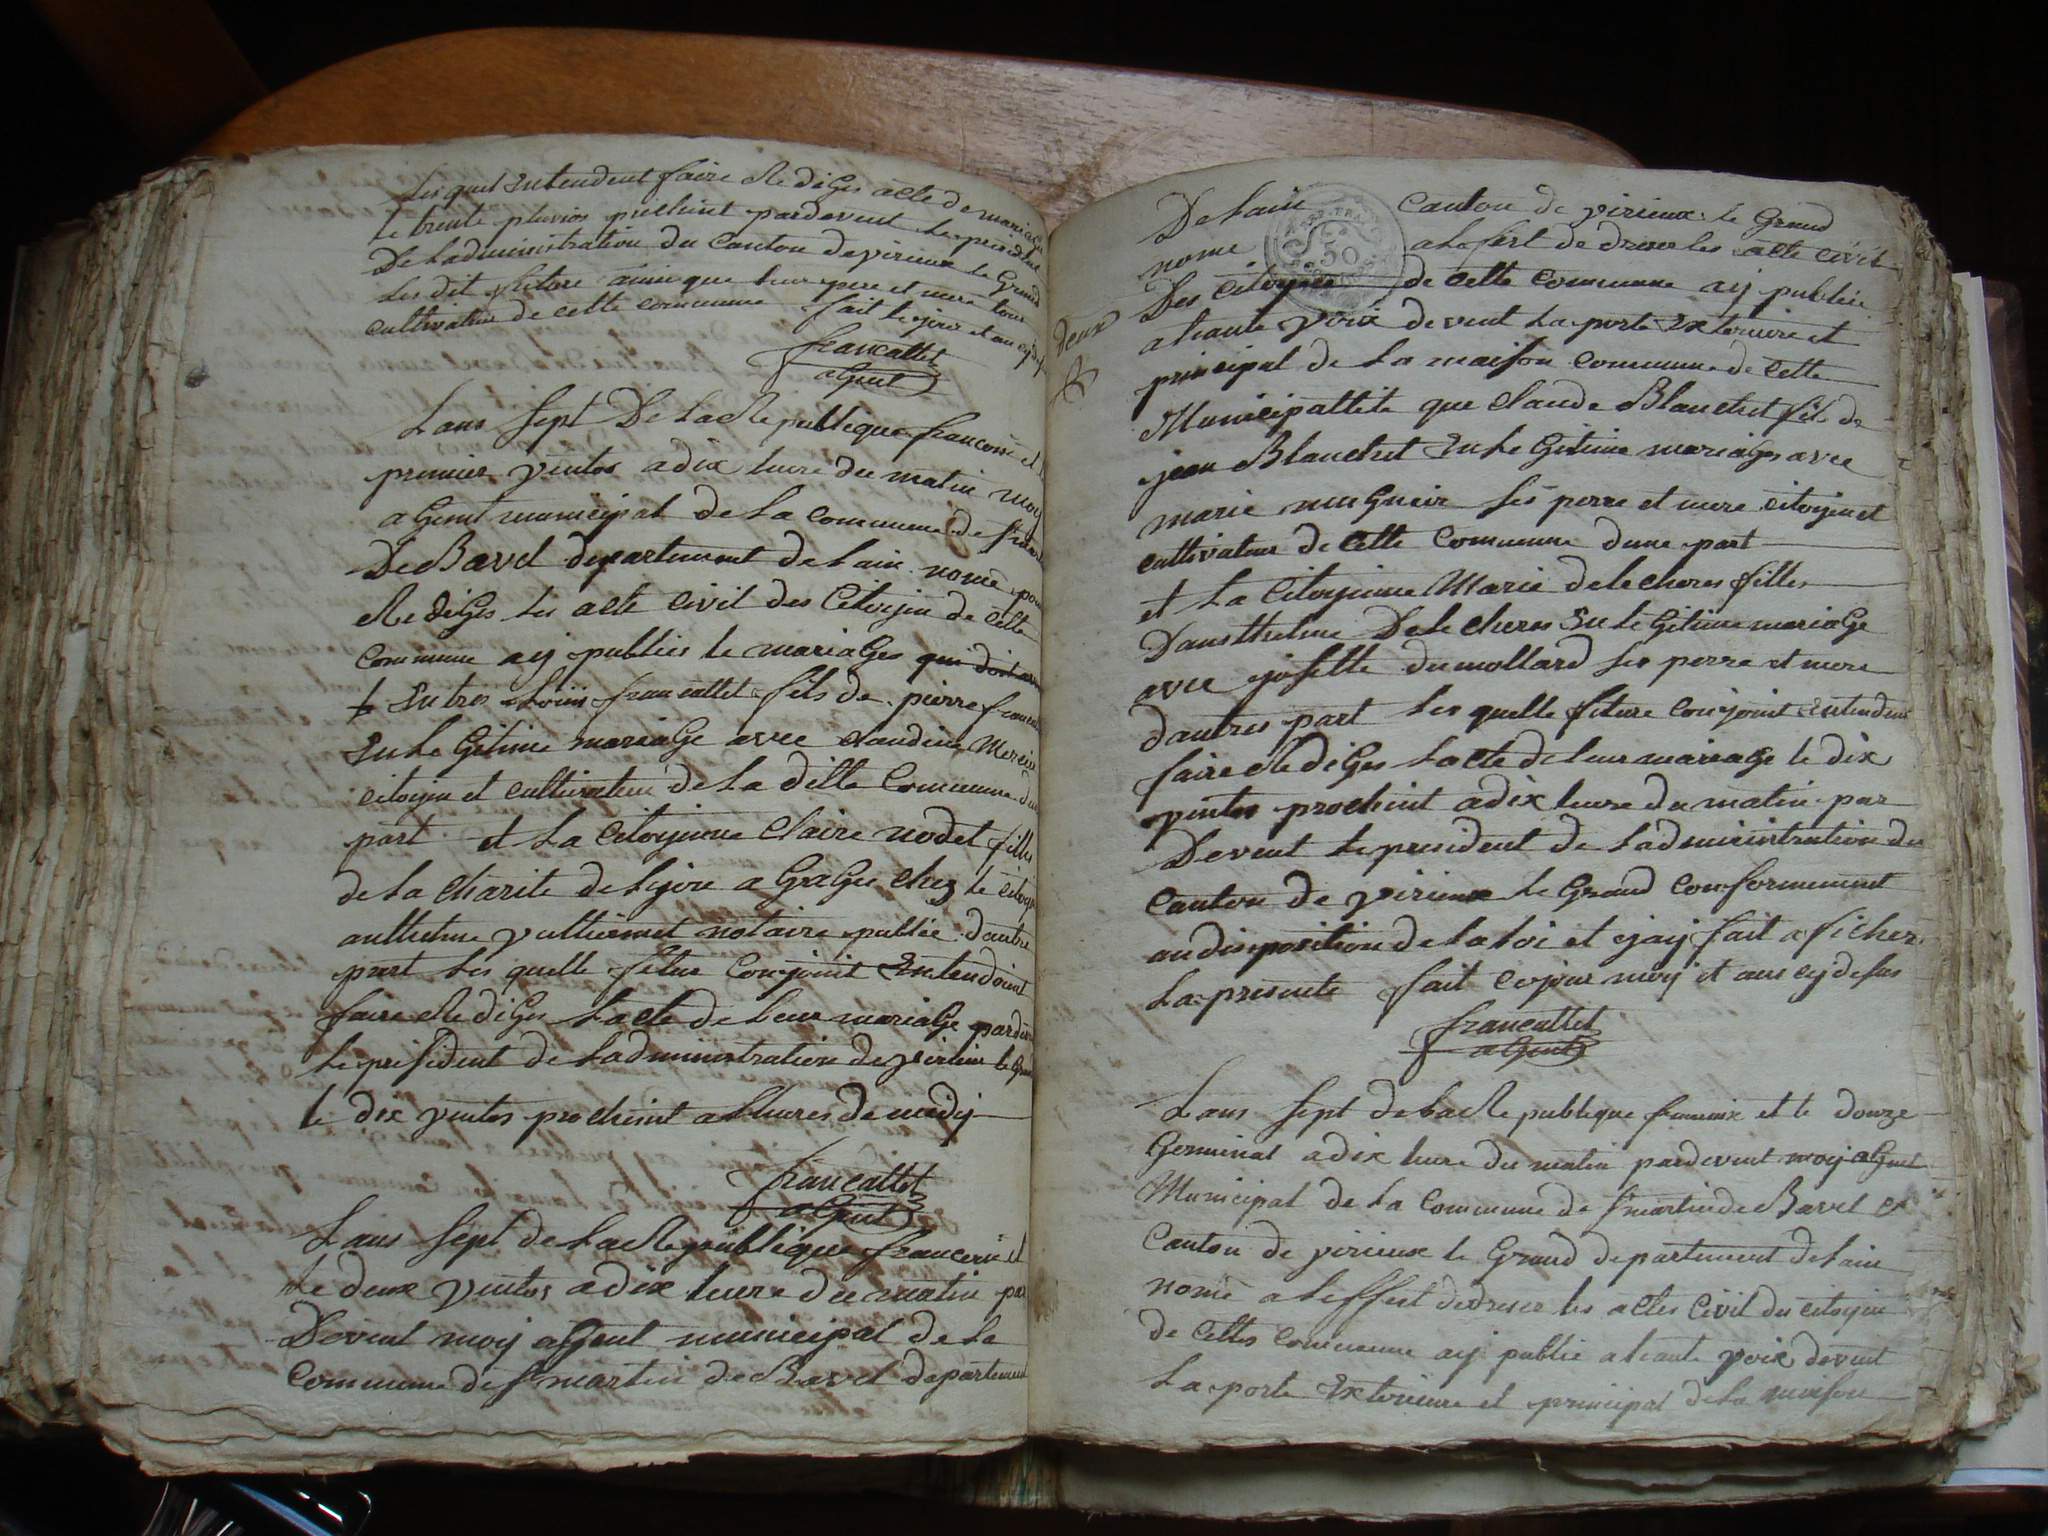 les quel Intendent faire Rediges acte de mariage
le trente pluvios prochint pardevent le president
De Ladministration du Canton de virieux le Grand
les dit future ainsi que leur pere et mere tous
cultivateur de cette commune fait le jour et an cy desus
francallet
agent
Lans Sept De La Republique francoise et le
premier ventos a dix heure du matin moy
agent municipal de la commune de st martin
De Bavel departement de Lain nomé pour
Rediges les acte civil des Citoyin de cette
commune aij publies le mariages qui doit
le Entres Louis francallet fils de pierre francallet
En Le Gitime mariage avec claudine
citoyin et cultivateur de la ditte Commune dune
part et La citoyinne Claire nodet fille
de La Charite de Lyon a Gagée chez le citoyin
anthelme vulliermet notaire public dautre
part les quelle futur Conjoint Entendoint
faire Rediges Lacte de Leur mariage pardevent
le president de Ladministration de virieux le Grand
le dix ventos prochint a lheures de midij
francallet
agent
Lans Sept de La Republique francoise et
le deux Ventos a dix heure du matin par
Devent moy agent municipal de la
Commune de st martin de Bavel departement
De Lain Canton de virieux le Grand
nomé a Lefert de dresser les acte civil
REP. FRA.
50
Des Citoyins de cette commune aij publiée
deux
a haute voix devent la porte Exterieure et
principal de la maison commune de cette
Municipallité que claude Blanchet fils de
jean Blanchet En Le Gitime mariages avec
marie mugnier ses perre et mere citoyin et
cultivateur de cette Commune dune part
et la Citoyinne Marie delecheres filles
Dansthelme Delecheres En le Gitime mariage
avec josette dumollard ses perre et mere
dautres part les quelle future conjoint Entendent
faire Rediges Lacte de leur mariage le dix
ventos prochint a dix heure du matin par
Devent le president de Ladministration du
Canton de virieux le Grand conformement
au disposition de la loi et ejaij fait aficher
la presente fait ce jour moy et ans cij desus
francallet
agent
Lans Sept de La Republique francoise et le douze
Germinal a dix heure du matin pardevent moy agent
Municipal de la Commune de st martin de Bavel
Canton de virieux le Grand departement de Lain
nomé a leffert de dresser les actes civil des citoyin
de Cettes commune aij publie a haute voix devent
La porte Exterieure et principal de la maison